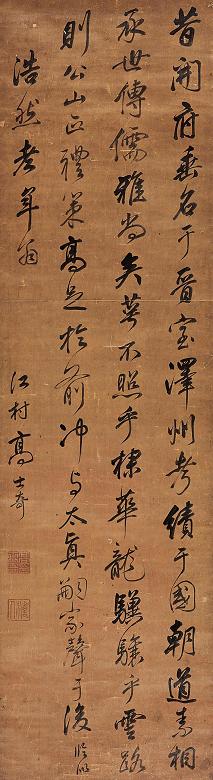 昔開府垂名于晉室澤州考績于國朝道素相
承世傳儒雅尚矣萼不照乎棣華龍驥驤乎雲路
則公山正禮策高足於前冲与太真嗣家聲于後 臨似
浩然老年翁
江村高士奇